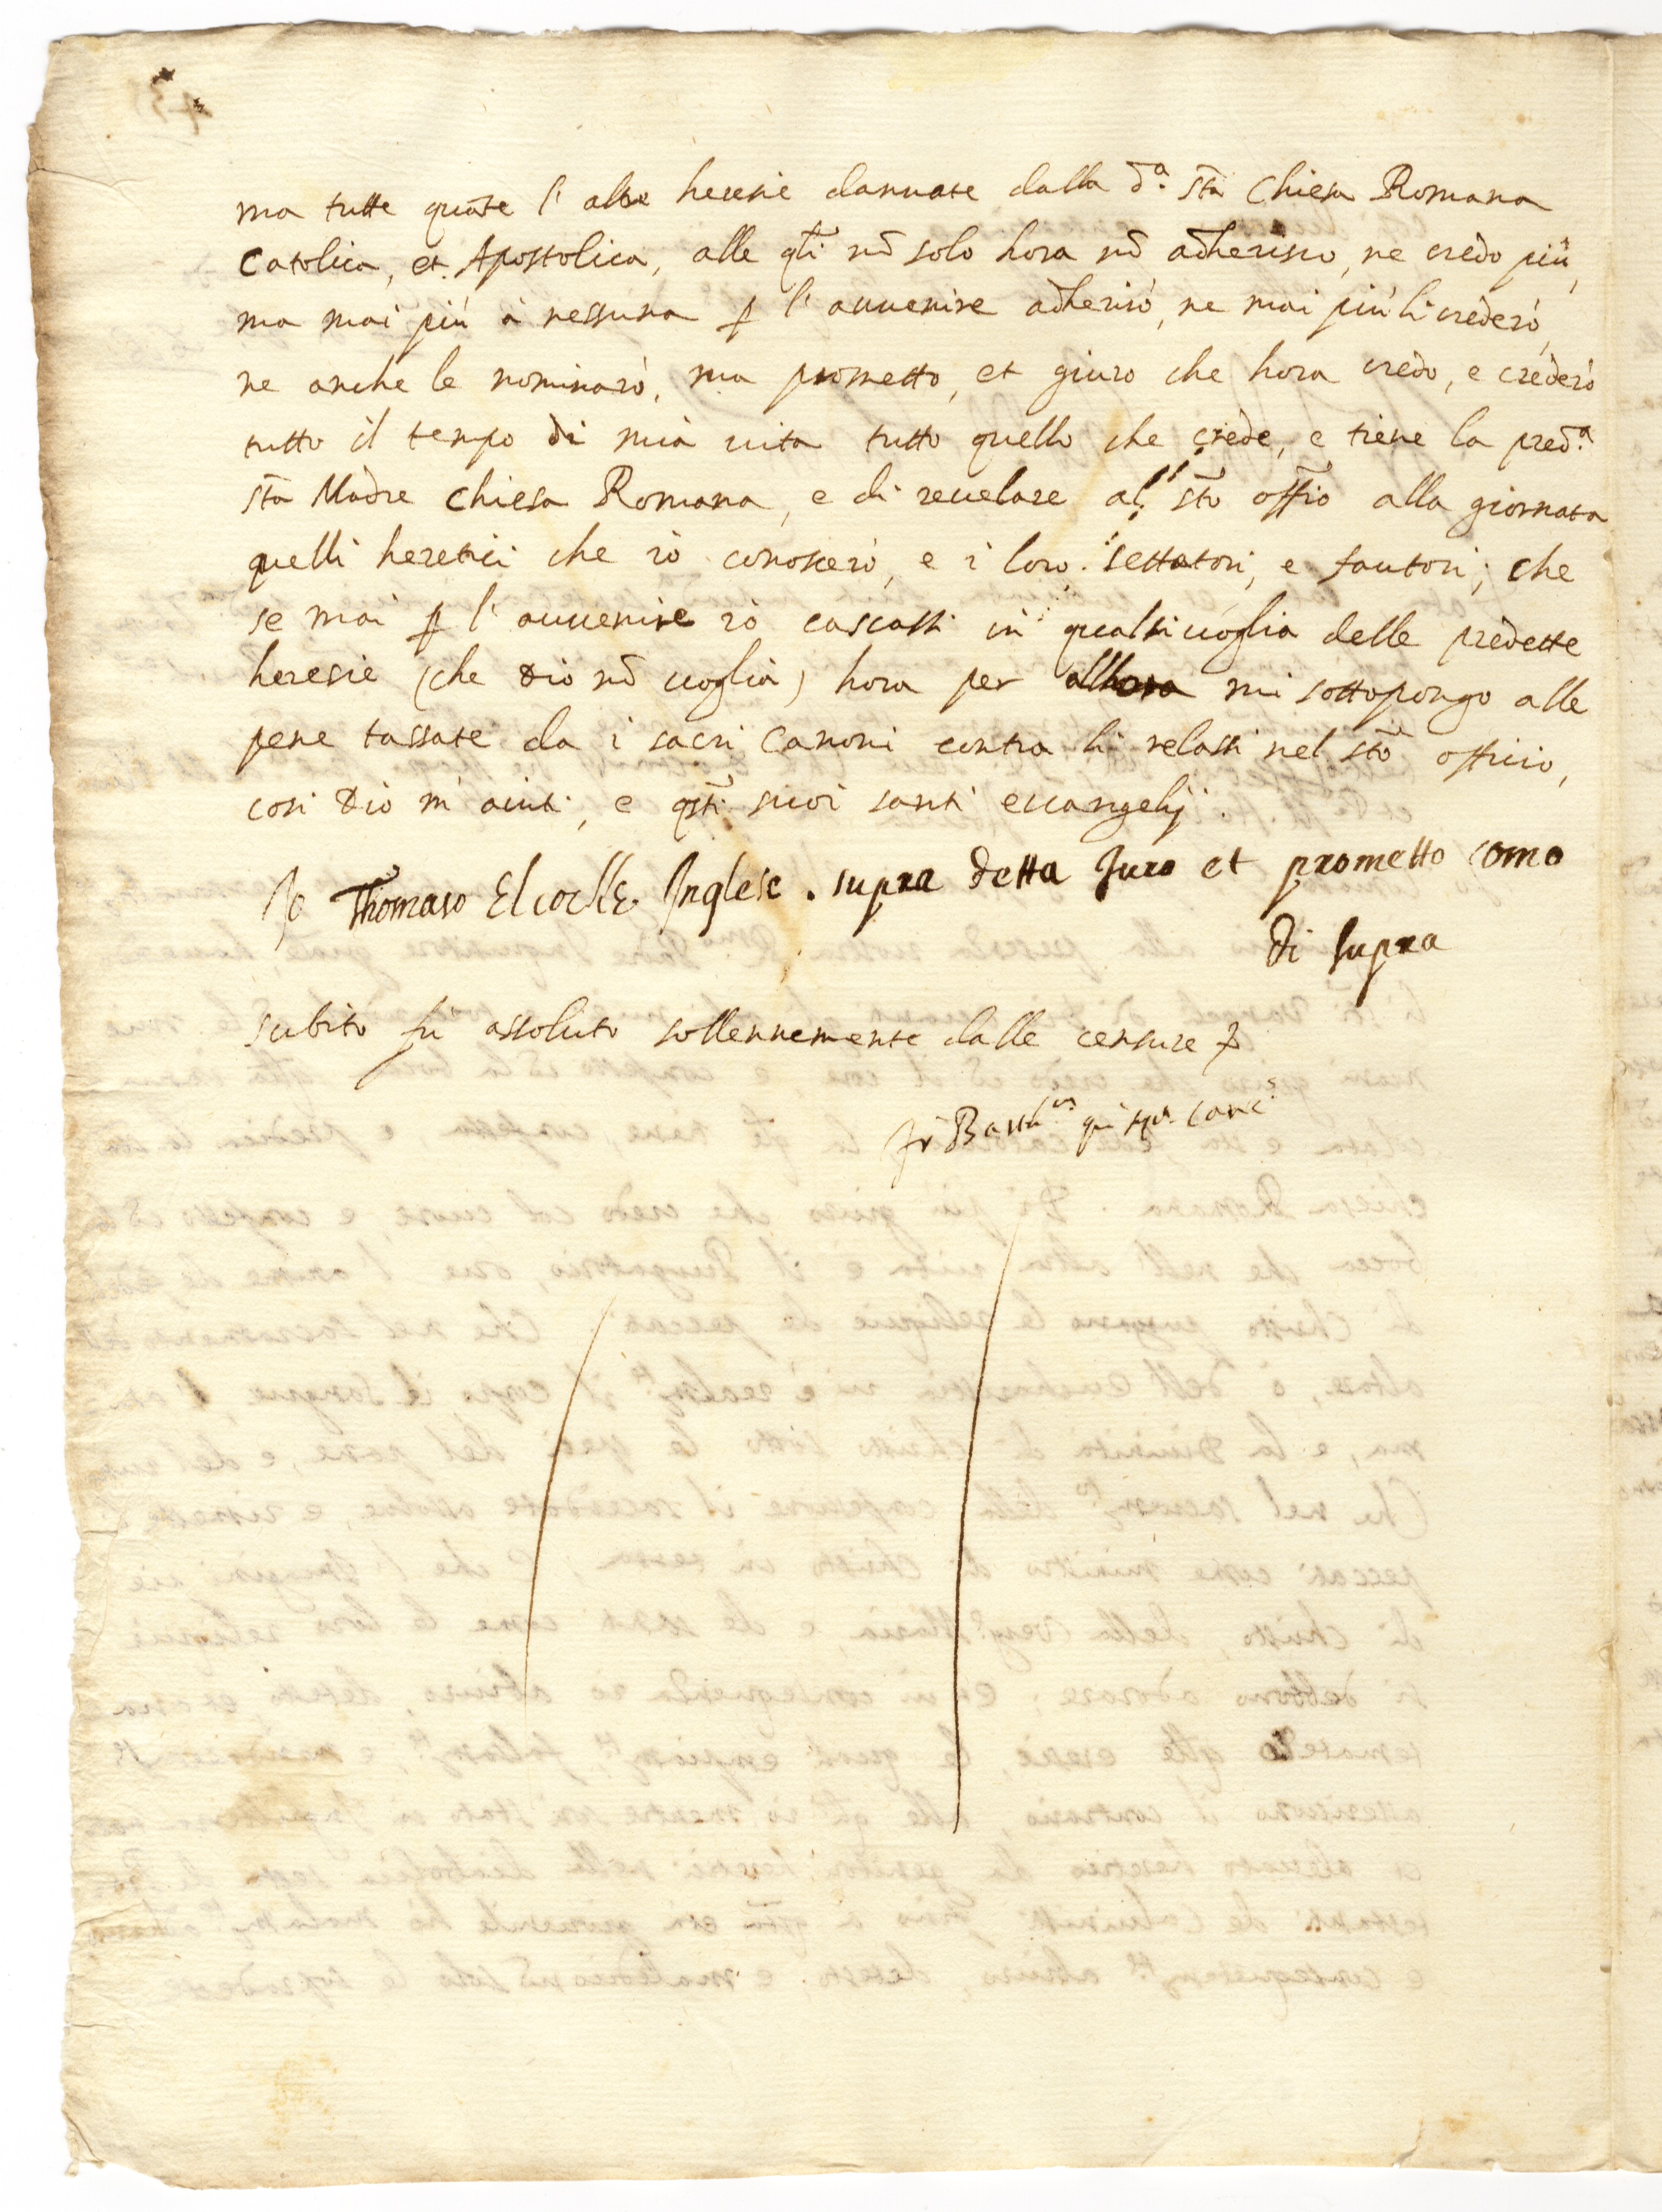 ma tutte quãte l' altre heresie dannate dalla d.ª s̃ta Chiesa Romana
Catolica, et Apostolica, alle q̃li nõ solo hora nõ adherisco, ne credo più,
ma mai più à nessuna ꝑ l' auuenire adherirò, ne mai più li crederò,
ne anche le nominarò, ma prometto, et giuro che hora credo, e crederò
tutto il tempo di mia uita tutto quello che crede, e tiene la pred.ª
s̃ta Madre Chiesa Romana, e di reuelare al s̃to offĩo alla giornata
quelli heretici che io conoscerò, e i loro settatori, e fautori; che
se mai ꝑ l' auuenire io cascassi in qualsiuoglia delle predette
heresie (che Dio nõ uoglia) hora per allhora mi sottopongo alle
pene tassate da i sacri Canoni contra li relassi nel s̃to officio,
cosi Dio m' aiuti, e q̃sti suoi santi euangelij.
Io Thomaso Elcocke Inglese. supra detta Juro et prometto como
di supra
Subito fù assoluto sollennemente dalle censure
fr Barth.us qui sup.a canc.s